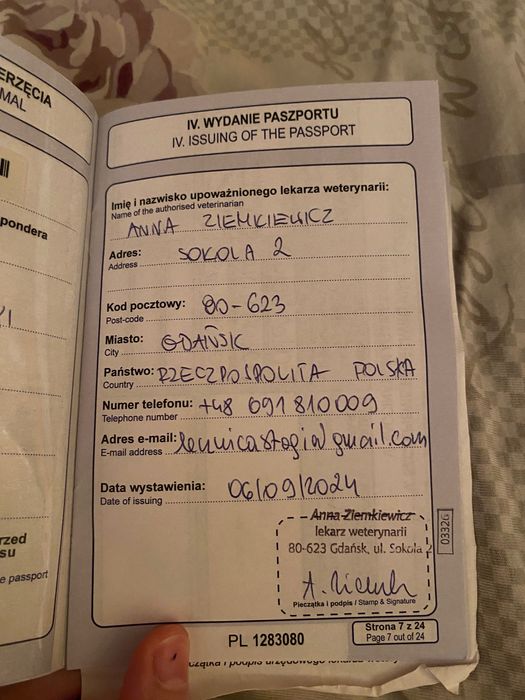 ERZĘCIA
MAL
pondera
rzed
su
e passport
IV. WYDANIE PASZPORTU
IV. ISSUING OF THE PASSPORT
Imię i nazwisko upoważnionego lekarza weterynarii:
Name of the authorised veterinarian
ANNA ZIEMKIEWICZ
Adres: SOKOLA 2
Address
Kod pocztowy: 80-623
Post-code
Miasto: GDAŃSK
City
Państwo: RZECZPOSPOLITA POLSKA
Country
Numer telefonu: +48 691 810 009
Telephone number
Adres e-mail: gmail.com
E-mail address
Data wystawienia: 06/09/2024
Date of issuing
Anna Ziemkiewicz
lekarz weterynarii
80-623 Gdańsk, ul. Sokola 2
Pieczątka i podpis / Stamp & Signature
03326
Strona 7 z 24
Page 7 out of 24
PL 1283080